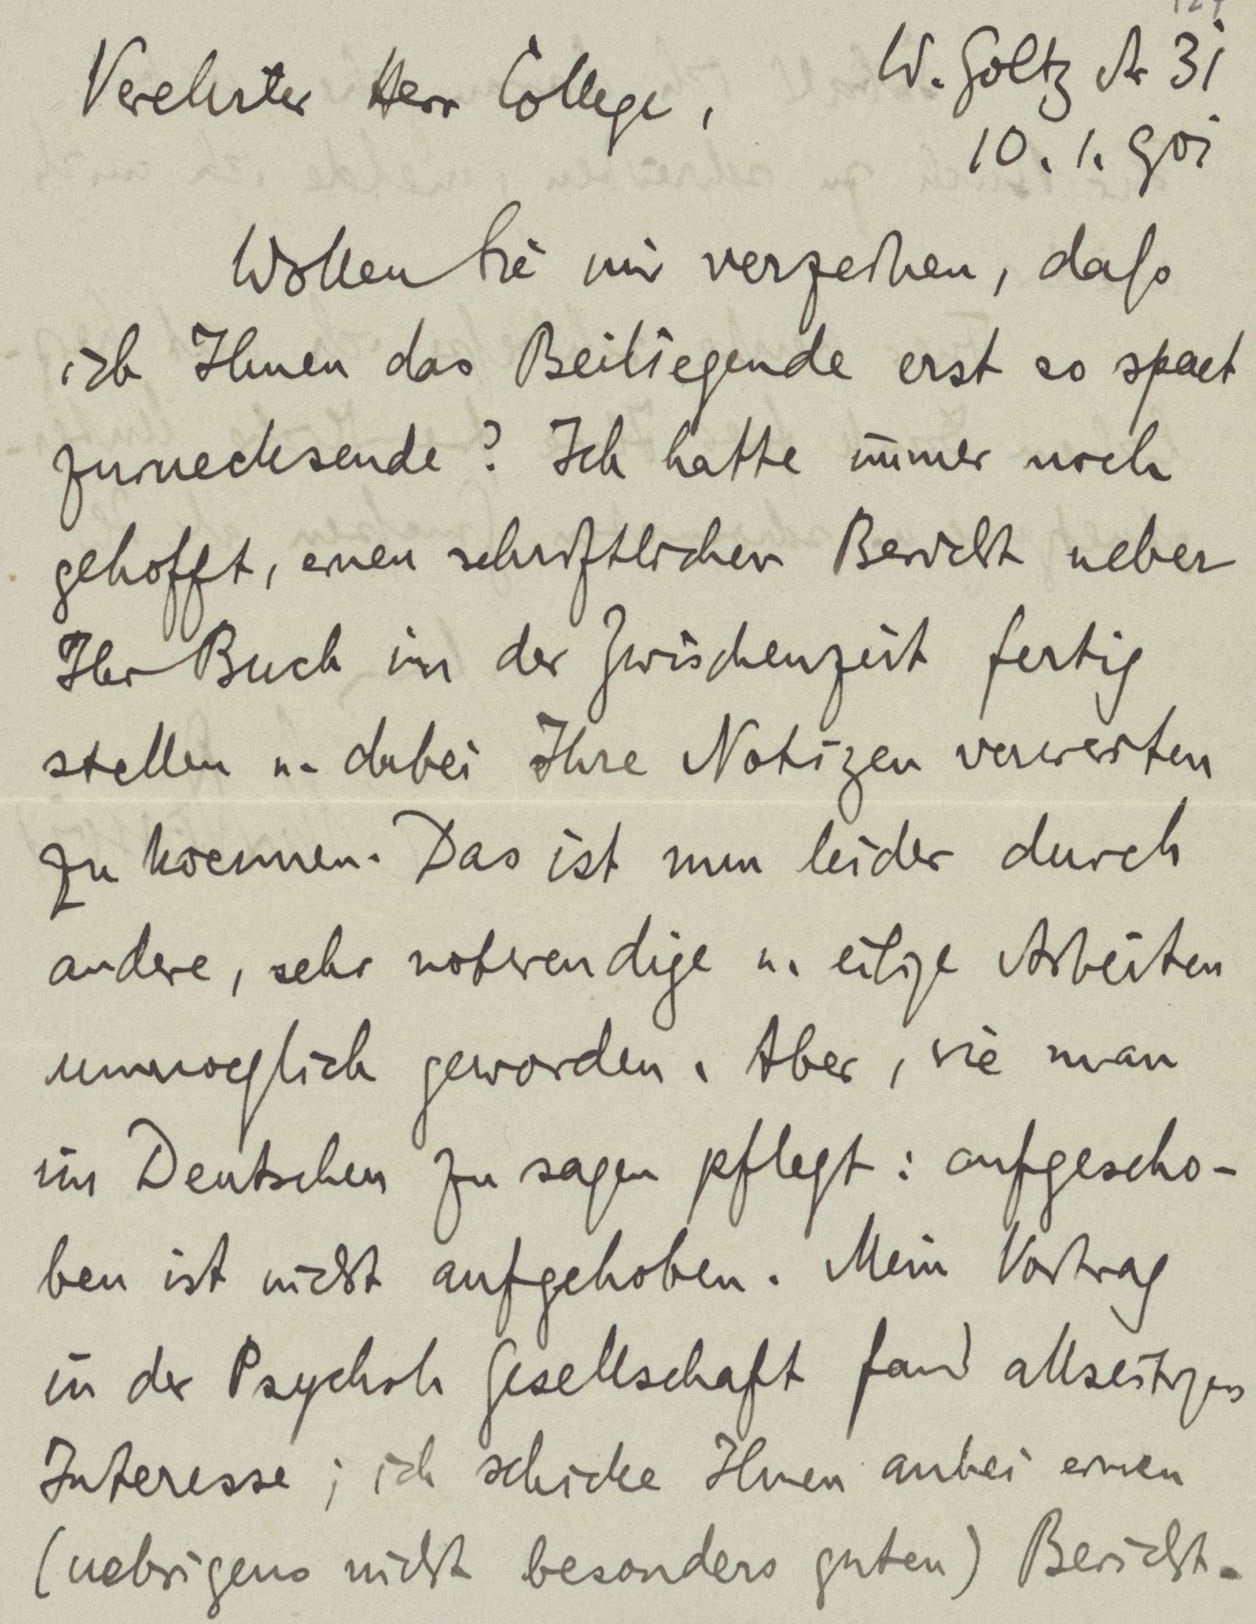 W. Goltz str 31
Verehrter Herr College,
10. 1. 901
Wollen Sie mir verzeihen, dass
ich Ihnen das Beiliegende erst so spaet
zuruecksende? Ich hatte immer noch
gehofft, einen schriftlichen Bericht ueber
Ihr Buch in der Zwischenzeit fertig
stellen u. dabei Ihre Notizen verwerten
zu koennen. Das ist nun leider durch
andere, sehr notwendige u. eilige Arbeiten
unmoeglich geworden. Aber, wie man
im Deutschen zu sagen pflegt: aufgescho-
ben ist nicht aufgehoben. Mein Vortrag
in der Psychol. Gesellschaft fand allseitiges
Interesse; ich schicke Ihnen anbei einen
(uebrigens nicht besonders guten) Bericht.